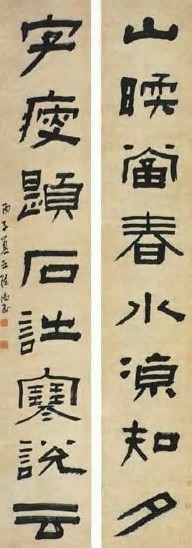 山暖留春水凉知夕
字瘦題石註寒說云
丙子夏五